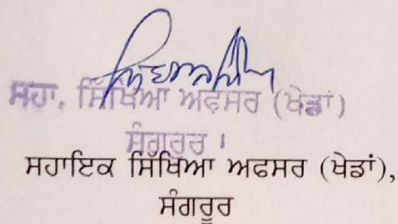 ਸਹਾ. ਸਿੱਖਿਆ ਅਫਸਰ (ਖੇਡਾਂ)
ਸੰਗਰੂਰ।
ਸਹਾਇਕ ਸਿੱਖਿਆ ਅਫਸਰ (ਖੇਡਾਂ),
ਸੰਗਰੂਰ